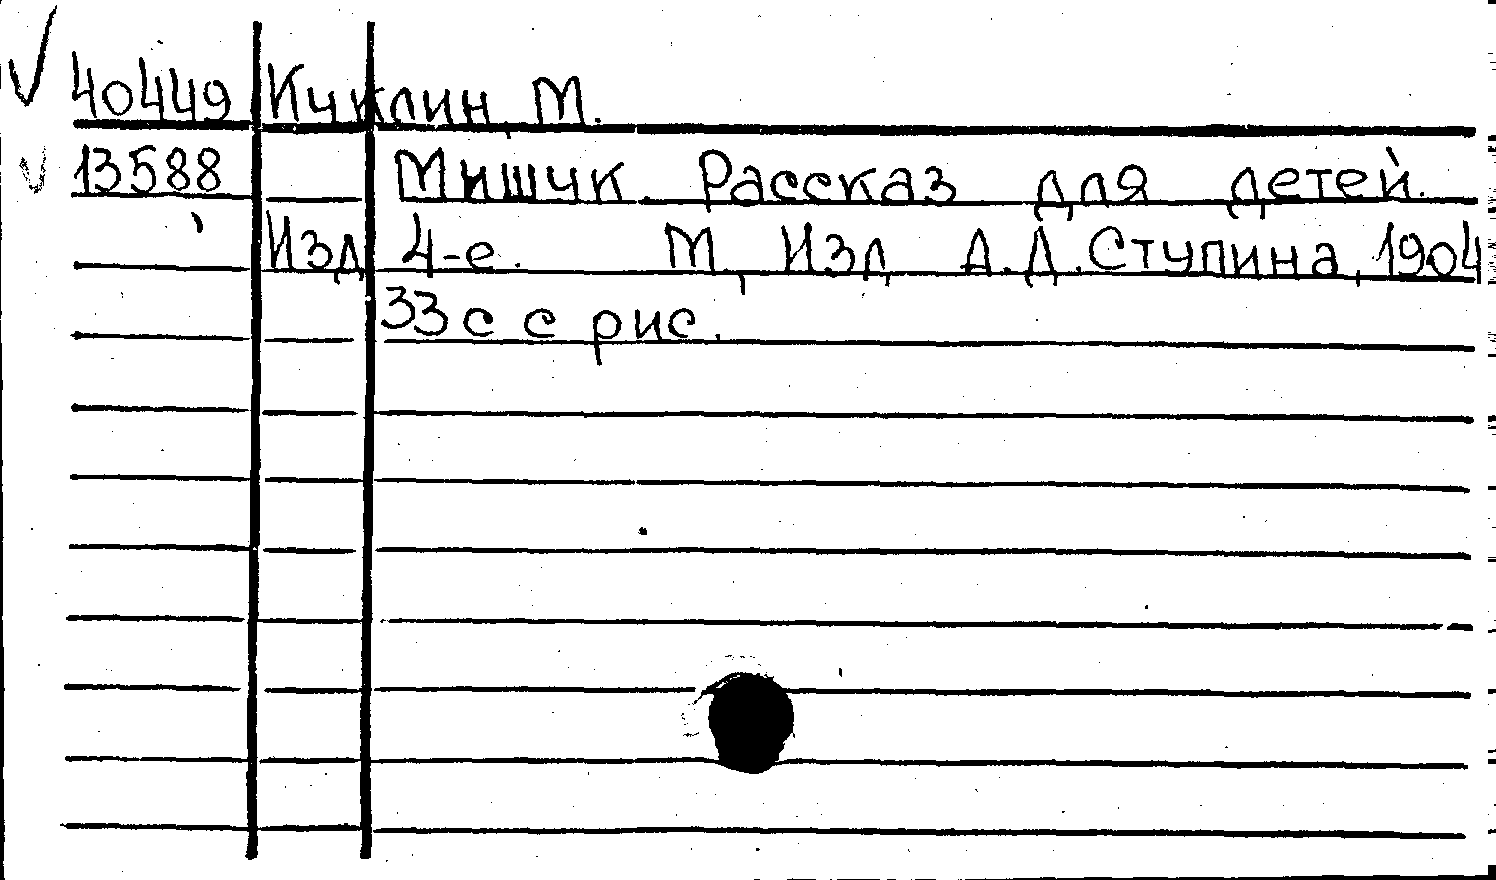 40449 Куклин, М.
13588 Мишук. Рассказ для детей.
Изд. 4-е. М., Изд. А.Д.Ступина, 1904
33 с с рис.